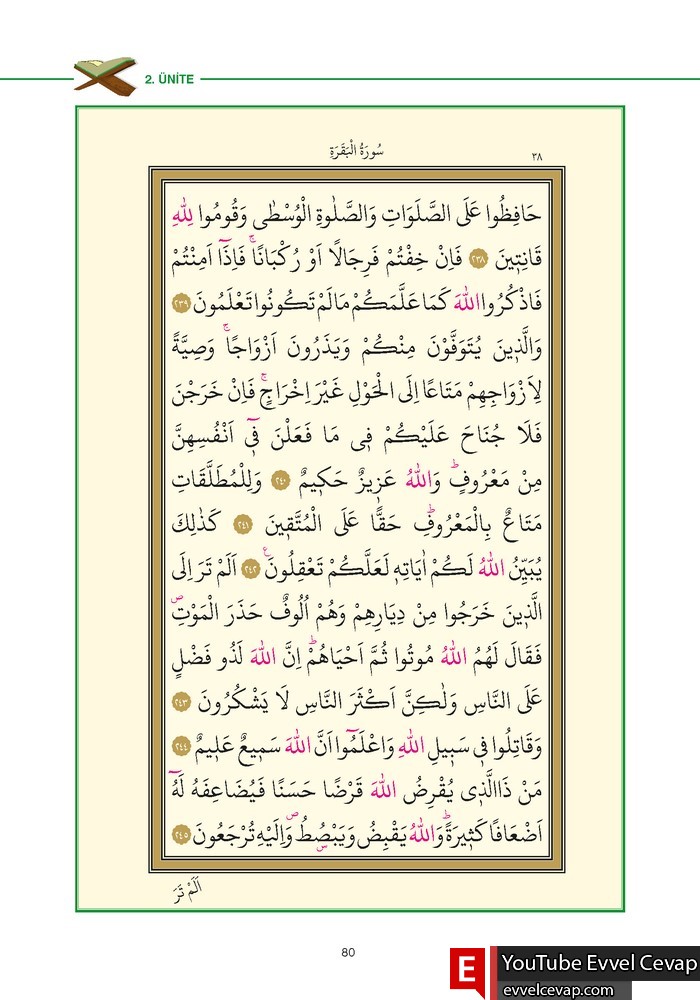 2. ÜNİTE
سُورَةُ الْبَقَرَةِ
٣٨
حَافِظُوا عَلَى الصَّلَوَاتِ وَالصَّلٰوةِ الْوُسْطٰى وَقُومُوا لِلّٰهِ
قَانِت۪ينَ ﴿٢٣٨﴾ فَاِنْ خِفْتُمْ فَرِجَالًا اَوْ رُكْبَانًاۚ فَاِذَٓا اَمِنْتُمْ
فَاذْكُرُوا اللّٰهَ كَمَا عَلَّمَكُمْ مَا لَمْ تَكُونُوا تَعْلَمُونَ ﴿٢٣٩﴾
وَالَّذ۪ينَ يُتَوَفَّوْنَ مِنْكُمْ وَيَذَرُونَ اَزْوَاجًاۚ وَصِيَّةً
لِاَزْوَاجِهِمْ مَتَاعًا اِلَى الْحَوْلِ غَيْرَ اِخْرَاجٍۚ فَاِنْ خَرَجْنَ
فَلَا جُنَاحَ عَلَيْكُمْ ف۪ى مَا فَعَلْنَ ف۪ٓى اَنْفُسِهِنَّ
مِنْ مَعْرُوفٍۜ وَاللّٰهُ عَز۪يزٌ حَك۪يمٌ ﴿٢٤٠﴾ وَلِلْمُطَلَّقَاتِ
مَتَاعٌ بِالْمَعْرُوفِۜ حَقًّا عَلَى الْمُتَّق۪ينَ ﴿٢٤١﴾ كَذٰلِكَ
يُبَيِّنُ اللّٰهُ لَكُمْ اٰيَاتِه۪ لَعَلَّكُمْ تَعْقِلُونَ۟ ﴿٢٤٢﴾ اَلَمْ تَرَ اِلَى
الَّذ۪ينَ خَرَجُوا مِنْ دِيَارِهِمْ وَهُمْ اُلُوفٌ حَذَرَ الْمَوْتِۖ
فَقَالَ لَهُمُ اللّٰهُ مُوتُوا ثُمَّ اَحْيَاهُمْۜ اِنَّ اللّٰهَ لَذُو فَضْلٍ
عَلَى النَّاسِ وَلٰكِنَّ اَكْثَرَ النَّاسِ لَا يَشْكُرُونَ ﴿٢٤٣﴾
وَقَاتِلُوا ف۪ى سَب۪يلِ اللّٰهِ وَاعْلَمُٓوا اَنَّ اللّٰهَ سَم۪يعٌ عَل۪يمٌ ﴿٢٤٤﴾
مَنْ ذَا الَّذ۪ى يُقْرِضُ اللّٰهَ قَرْضًا حَسَنًا فَيُضَاعِفَهُ لَهُٓ
اَضْعَافًا كَث۪يرَةًۜ وَاللّٰهُ يَقْبِضُ وَيَبْصُۣطُۖ وَاِلَيْهِ تُرْجَعُونَ ﴿٢٤٥﴾
اَلَمْ تَرَ
80
E YouTube Evvel Cevap
evvelcevap.com